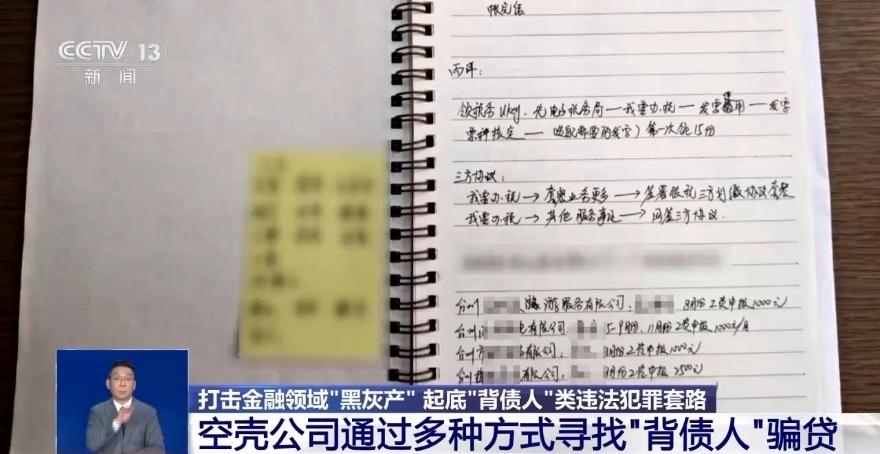 CCTV 13
新闻
两年：
领税务Ukey. 先电子税务局—我要办税—发票使用—发票
票种核定—选取需要的发票）第一次领15份
三方协议：
我要办税→套餐业务更多→签署银税三方划缴协议套餐
我要办税→其他服务事项→网签三方协议.
台州 游服务有限公司： 月份工资申报1000元/
台州 电有限公司. 5-9月份, 11月份工资申报1000元/月
台州市 有限公司： 月份工资申报1000元/
台州 有限公司： 月份工资申报2500元/
打击金融领域"黑灰产" 起底"背债人"类违法犯罪套路
空壳公司通过多种方式寻找"背债人"骗贷